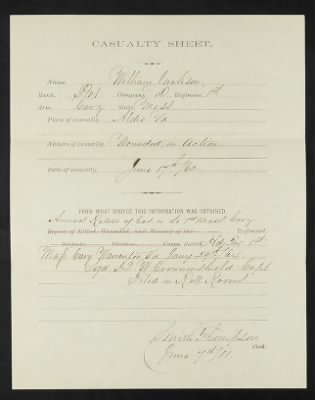 CASUALTY SHEET.
Name, William Jackson
Rank, Pvt Company, D. Regiment, 1st
Arm, Cavy State, Mass
Place of casualty, Aldie Va
Nature of casualty, Wounded in Action
Date of casualty, June 17th /63
FROM WHAT SOURCE THIS INFORMATION WAS OBTAINED.
Annual Return of Cas in 1st Mass Cavy
Report of Killed, Wounded, and Missing of the Regiment,
Brigade, Division, Corps, dated Hd. Qrs 1st
Mass Cavy Warrenton Va Jany
Sgd Capt
Filed in Roll Room
Smith Thompson
Clerk.
June 7th /71